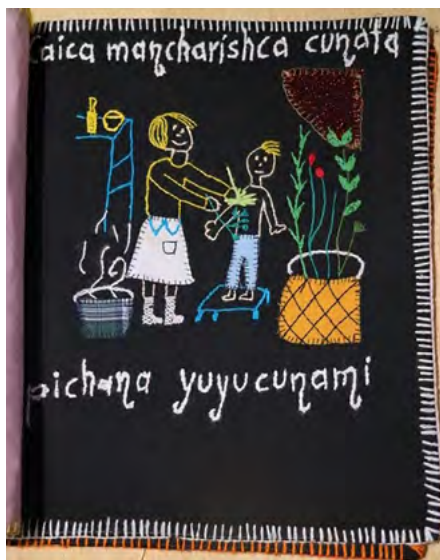 caica mancharishca cunata
pichana yuyucunami